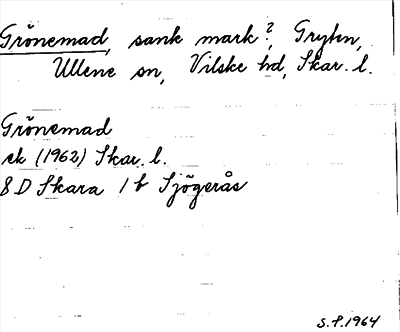 Grönemad, sank mark?, Gryten,
Ullene sn, Vilske hd, Skar. l.
Grönemad
ek (1962) Skar. l.
8D Skara 1b Sjögerås
S.F. 1964